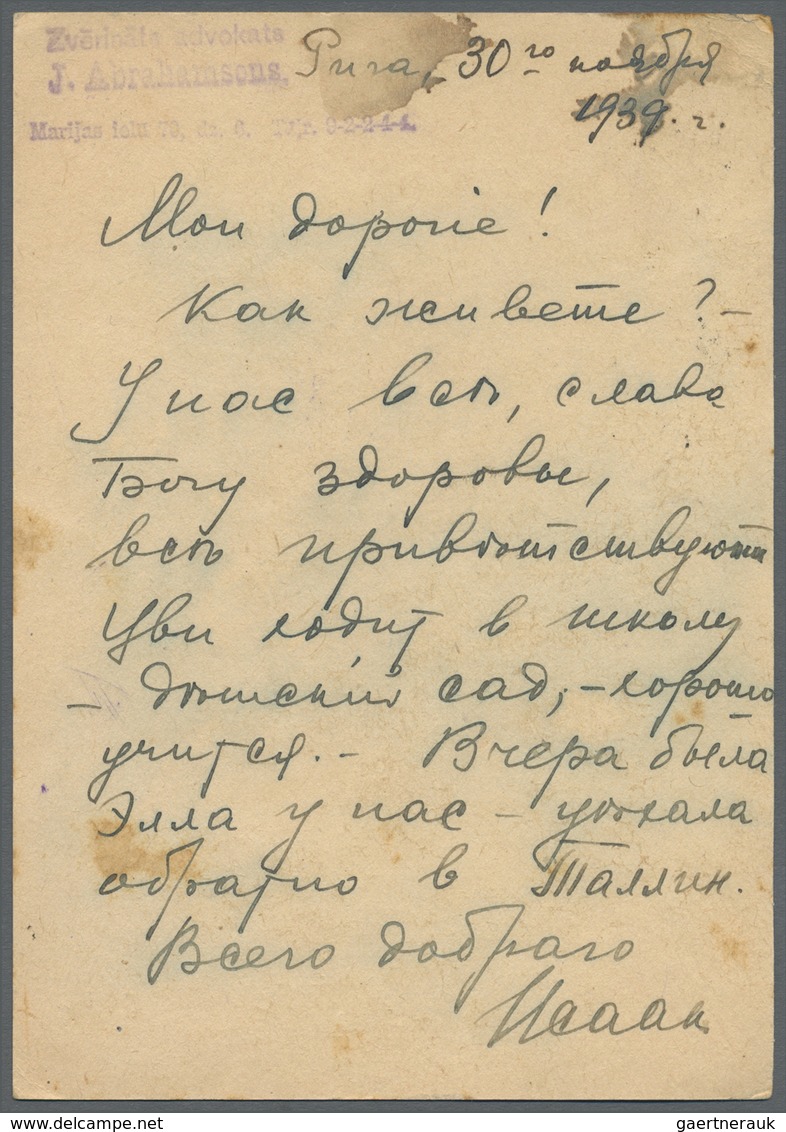 Zvērināts advokats
J. Abrahamsons,
Marijas ielu 79, dz. 6. Tālr. 9-2-2-4-4.
Рига, 30го ноября
1939. г.
Мои дорогіе!
Как живете? –
У нас всѣ, слава
Богу здоровы,
всѣ привѣтствуют
Цви ходит в школу
– дѣтскій сад, – хорошо
учится. – Вчера была
Элла у нас – уѣхала
обратно в Таллин.
Всего добраго
Исаак
gaertnerauk